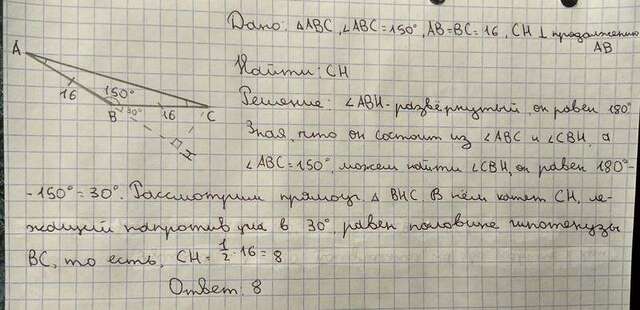 Дано: △ABC, ∠ABC=150°, AB=BC=16, CH ⊥ продолжению
AB
Найти: CH
Решение: ∠ABH-развёрнутый, он равен 180°
Зная, что он состоит из ∠ABC и ∠CBH, а
∠ABC=150°, можем найти ∠CBH, он равен 180°-
-150°=30°. Рассмотрим прямоуг. △ BHC. В нём катет CH, ле-
жащий напротив угла в 30°, равен половине гипотенузы
BC, то есть, CH=1/2·16=8
Ответ: 8
A
16
150°
B
30°
16
C
H